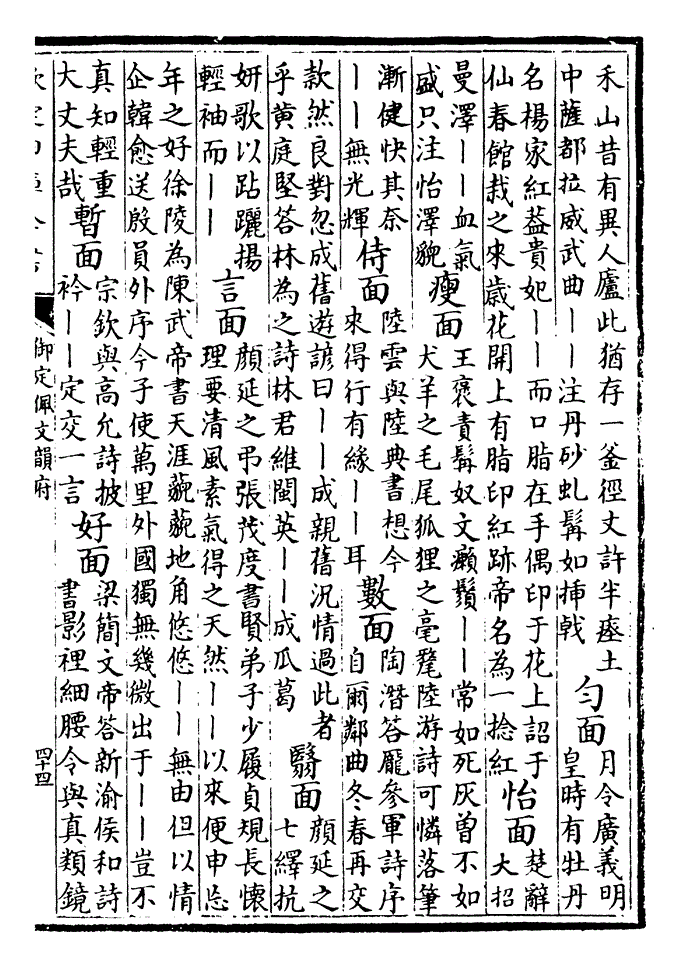 禾山昔有異人廬此猶存一釜徑丈許半瘞土
中薩都拉威武曲——注丹砂虬髯如插戟
勻面
月令廣義明
皇時有牡丹
名楊家紅葢貴妃——而口脂在手偶印于花上詔于
仙春館栽之來歲花開上有脂印紅跡帝名為一捻紅
怡面
楚辭
大招
曼澤——血氣
盛只注怡澤貌
瘦面
王褒責髯奴文癩鬚——常如死灰曾不如
犬羊之毛尾狐狸之毫毣陸游詩可憐落筆
漸健快其奈
——無光輝
侍面
陸雲與陸典書想今
來得行有緣——耳
數面
陶潛答龎參軍詩序
自爾鄰曲冬春再交
款然良對忽成舊遊諺曰——成親舊況情過此者
乎黄庭堅答林為之詩林君維閩英——成瓜葛
翳面
顔延之
七繹抗
妍歌以跕躧揚
輕袖而——
言面
顔延之弔張茂度書賢弟子少履貞規長懷
理要清風素氣得之天然——以來便申忘
年之好徐陵為陳武帝書天涯藐藐地角悠悠——無由但以情
企韓愈送殷員外序今子使萬里外國獨無幾微出于——豈不
真知輕重
大丈夫哉
暫面
宗欽與高允詩披
衿——定交一言
好面
梁簡文帝答新渝侯和詩
書影裡細腰令與真類鏡
御定佩文韻府
四十四